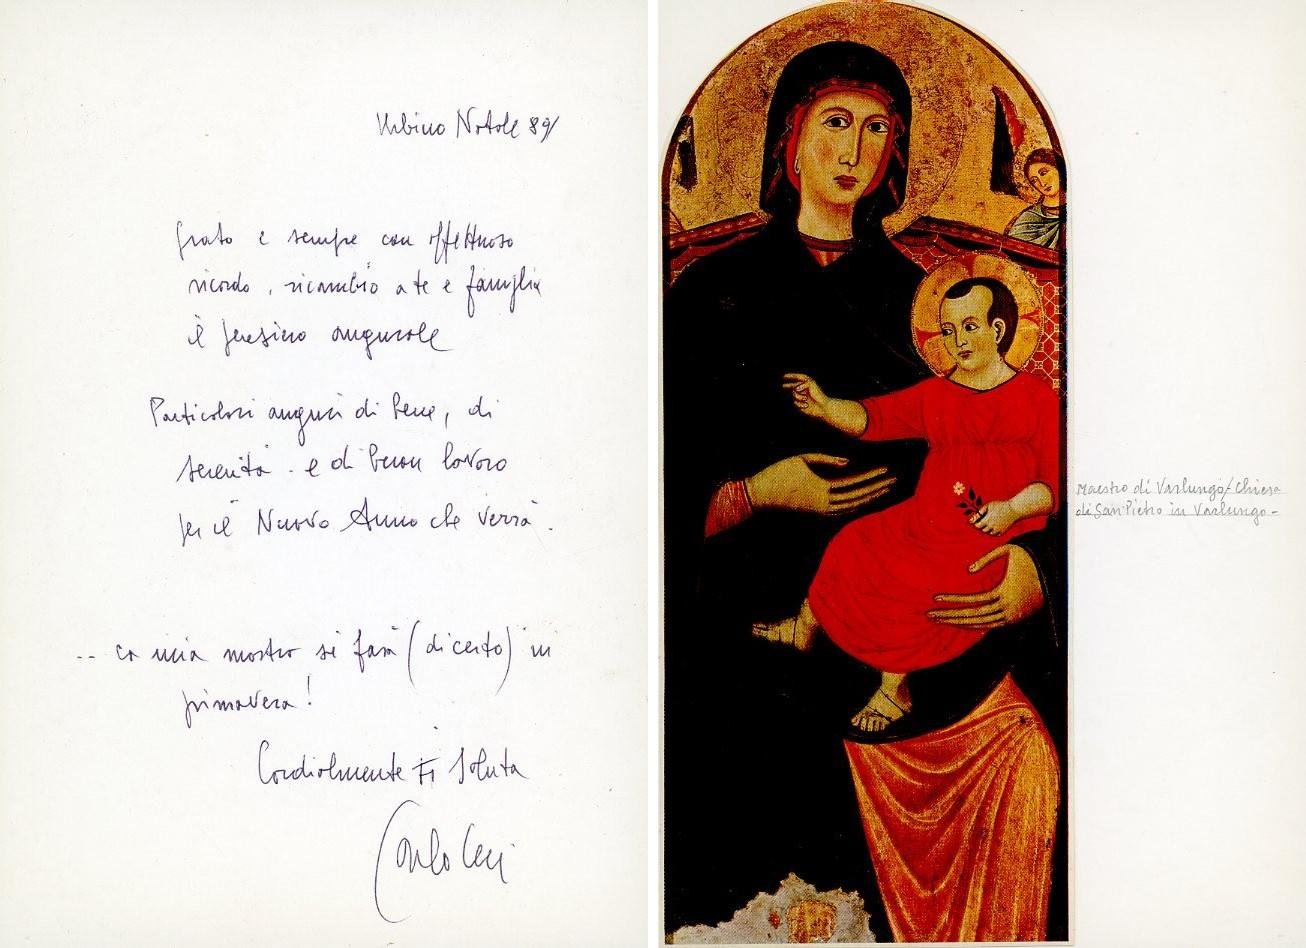 Urbino Natale 89/
Grato e sempre con affettuoso
ricordo, ricambio a te e famiglia
il pensiero augurale
Particolari auguri di bene, di
serenità - e di buon lavoro
per il Nuovo Anno che verrà.
-- La mia mostra si farà (di certo) in
primavera!
Cordialmente Ti saluta
Carlo Ceci
Maestro di Varlungo/Chiesa
di San Pietro in Varlungo-